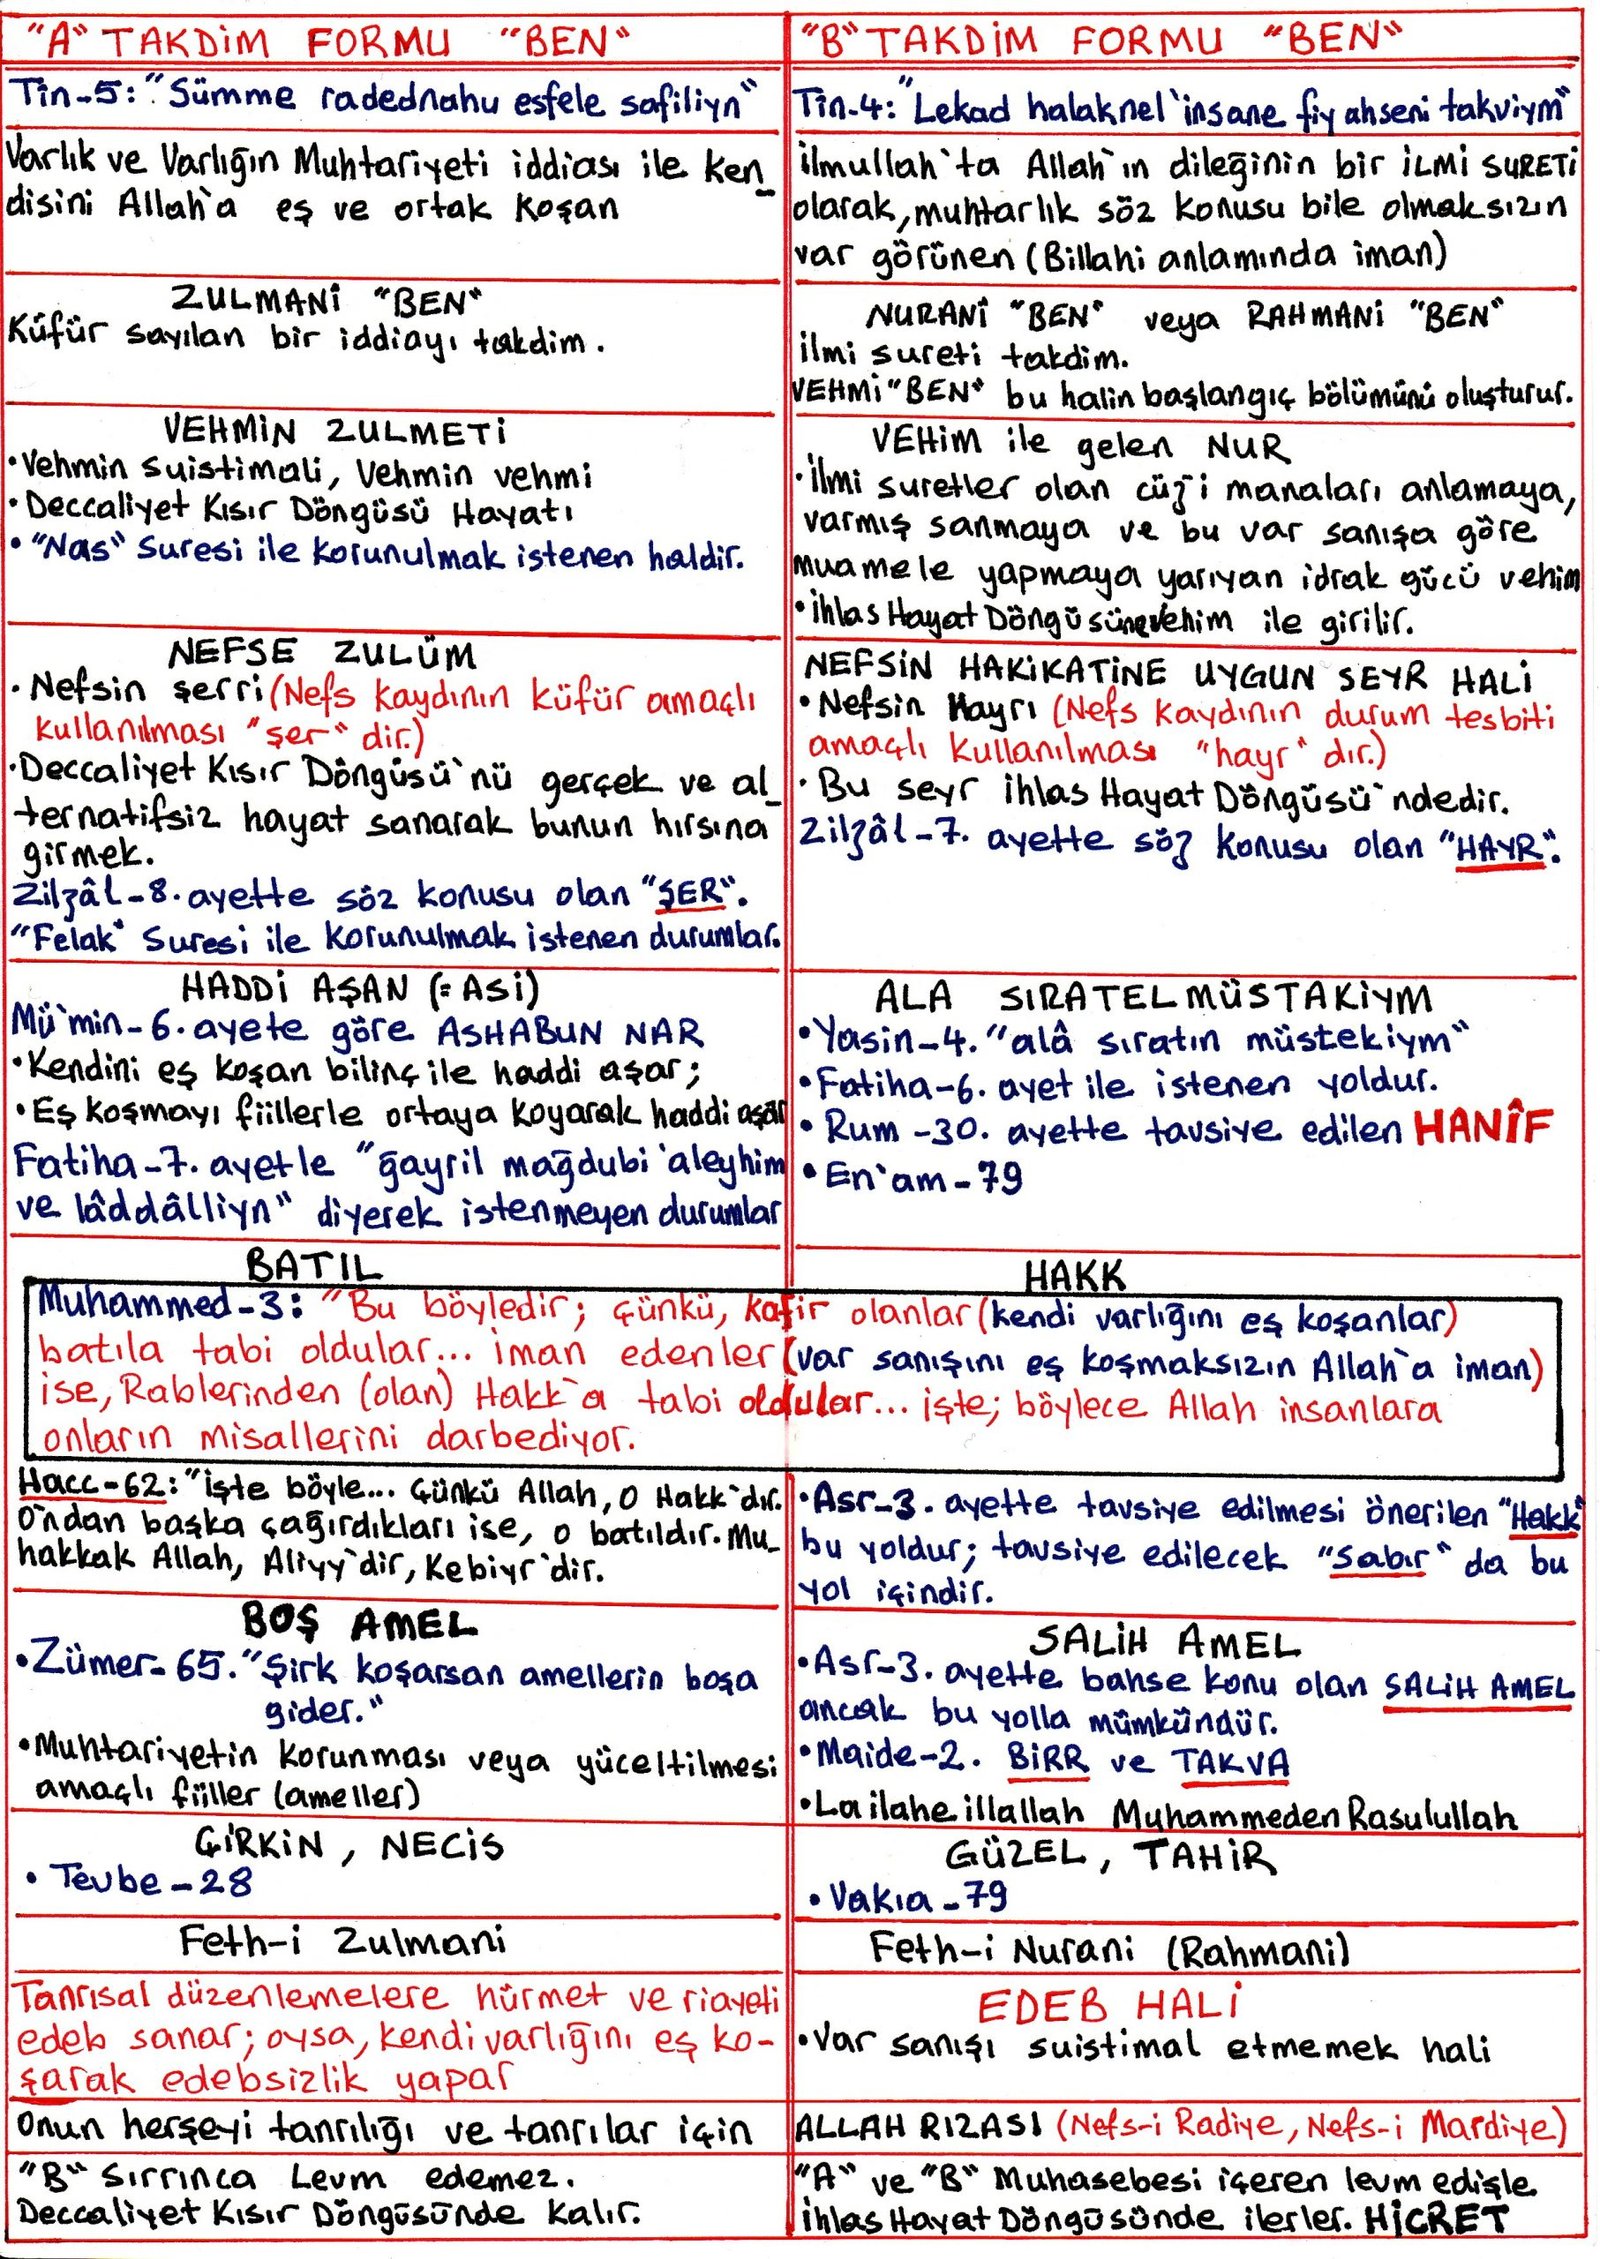 "A" TAKDİM FORMU "BEN"
Tîn-5: "Sümme radednahu esfele safiliyn"
Varlık ve Varlığın Muhtariyeti iddiası ile ken_
disini Allah'a eş ve ortak koşan
ZULMANİ "BEN"
Küfür sayılan bir iddiayı takdim.
VEHMİN ZULMETİ
•Vehmin suistimali, Vehmin vehmi
•Deccaliyet Kısır Döngüsü Hayatı
•"Nas" Suresi ile korunulmak istenen haldir.
NEFSE ZULÜM
•Nefsin şerri (Nefs kaydının küfür amaçlı
kullanılması "şer" dir.)
•Deccaliyet Kısır Döngüsü'nü gerçek ve al_
ternatifsiz hayat sanarak bunun hırsına
girmek.
Zilzâl-8. ayette söz konusu olan "ŞER".
"Felak" Suresi ile korunulmak istenen durumlar.
HADDİ AŞAN (=ASİ)
Mü'min-6. ayete göre ASHABUN NAR
•Kendini eş koşan bilinç ile haddi aşar;
•Eş koşmayı fiillerle ortaya koyarak haddi aşar
Fatiha-7. ayetle "ğayril mağdubi 'aleyhim
ve lâddâlliyn" diyerek istenmeyen durumlar
BATIL
"B" TAKDİM FORMU "BEN"
Tîn-4: "Lekad halaknel'insane fiy ahseni takviym"
İlmullah'ta Allah'ın dileğinin bir İLMİ SURETİ
olarak, muhtarlık söz konusu bile olmaksızın
var görünen (Billahi anlamında iman)
NURANİ "BEN" veya RAHMANİ "BEN"
İlmi sureti takdim.
VEHMİ "BEN" bu halin başlangıç bölümünü oluşturur.
VEHİM ile gelen NUR
•İlmi suretler olan cüz'i manaları anlamaya,
varmış sanmaya ve bu var sanışa göre
muamele yapmaya yarıyan idrak gücü vehim
•İhlas Hayat Döngüsüne vehim ile girilir.
NEFSİN HAKİKATİNE UYGUN SEYR HALİ
•Nefsin Hayrı (Nefs kaydının durum tesbiti
amaçlı kullanılması "hayr" dır.)
•Bu seyr İhlas Hayat Döngüsü'ndedir.
Zilzâl-7. ayette söz konusu olan "HAYR".
ALA SIRATEL MÜSTAKİYM
•Yasin-4. "alâ sıratın müstekiym"
•Fatiha-6. ayet ile istenen yoldur.
•Rum-30. ayette tavsiye edilen HANÎF
•En'am-79
HAKK
Muhammed-3: "Bu böyledir; çünkü, kafir olanlar (kendi varlığını eş koşanlar)
batıla tabi oldular... iman edenler (var sanışını eş koşmaksızın Allah'a iman)
ise, Rablerinden (olan) Hakk'a tabi oldular... işte; böylece Allah insanlara
onların misallerini darbediyor.
Hacc-62: "İşte böyle... Çünkü Allah, O Hakk'dır.
O'ndan başka çağırdıkları ise, o batıldır. Mu_
hakkak Allah, Aliyy'dir, Kebiyr'dir.
BOŞ AMEL
•Zümer-65. "Şirk koşarsan amellerin boşa
gider."
•Muhtariyetin korunması veya yüceltilmesi
amaçlı fiiller (ameller)
ÇİRKİN, NECİS
•Tevbe-28
Feth-i Zulmani
Tanrısal düzenlemelere hürmet ve riayeti
edeb sanar; oysa, kendi varlığını eş ko-
şarak edebsizlik yapar
Onun herşeyi tanrılığı ve tanrılar için
"B" Sırrınca Levm edemez.
Deccaliyet Kısır Döngüsünde kalır.
•Asr-3. ayette tavsiye edilmesi önerilen "Hakk"
bu yoldur; tavsiye edilecek "Sabır" da bu
yol içindir.
SALİH AMEL
•Asr-3. ayette bahse konu olan SALİH AMEL
ancak bu yolla mümkündür.
•Maide-2. BİRR ve TAKVA
•La ilahe illallah Muhammeden Rasulullah
GÜZEL, TAHİR
•Vakıa-79
Feth-i Nurani (Rahmani)
EDEB HALİ
•Var sanışı suistimal etmemek hali
ALLAH RIZASI (Nefs-i Radiye, Nefs-i Mardiye)
"A" ve "B" Muhasebesi içeren levm edişle
İhlas Hayat Döngüsünde ilerler. HİCRET